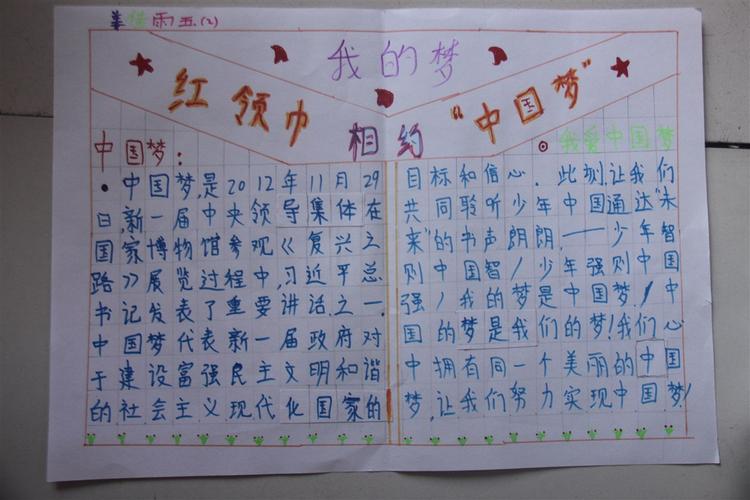 雨五(2)
我的梦
红领巾 相约 "中国梦"
中国梦:
•中国梦,是2012年11月29
日,新一届中央领导集体在
国家博物馆参观《复兴之
路》展览过程中,习近平总
书记发表了重要讲话之一.
中国梦代表新一届政府对
于建设富强民主文明和谐
的社会主义现代化国家的
我爱中国梦
目标和信心.此刻让我们
共同聆听少年中国通达"未
来"的书声朗朗,——少年智
则中国智!少年强则中国
强!我的梦是中国梦!中
国的梦是我们的梦!我们心
中拥有同一个美丽的中国
梦,让我们努力实现中国梦!